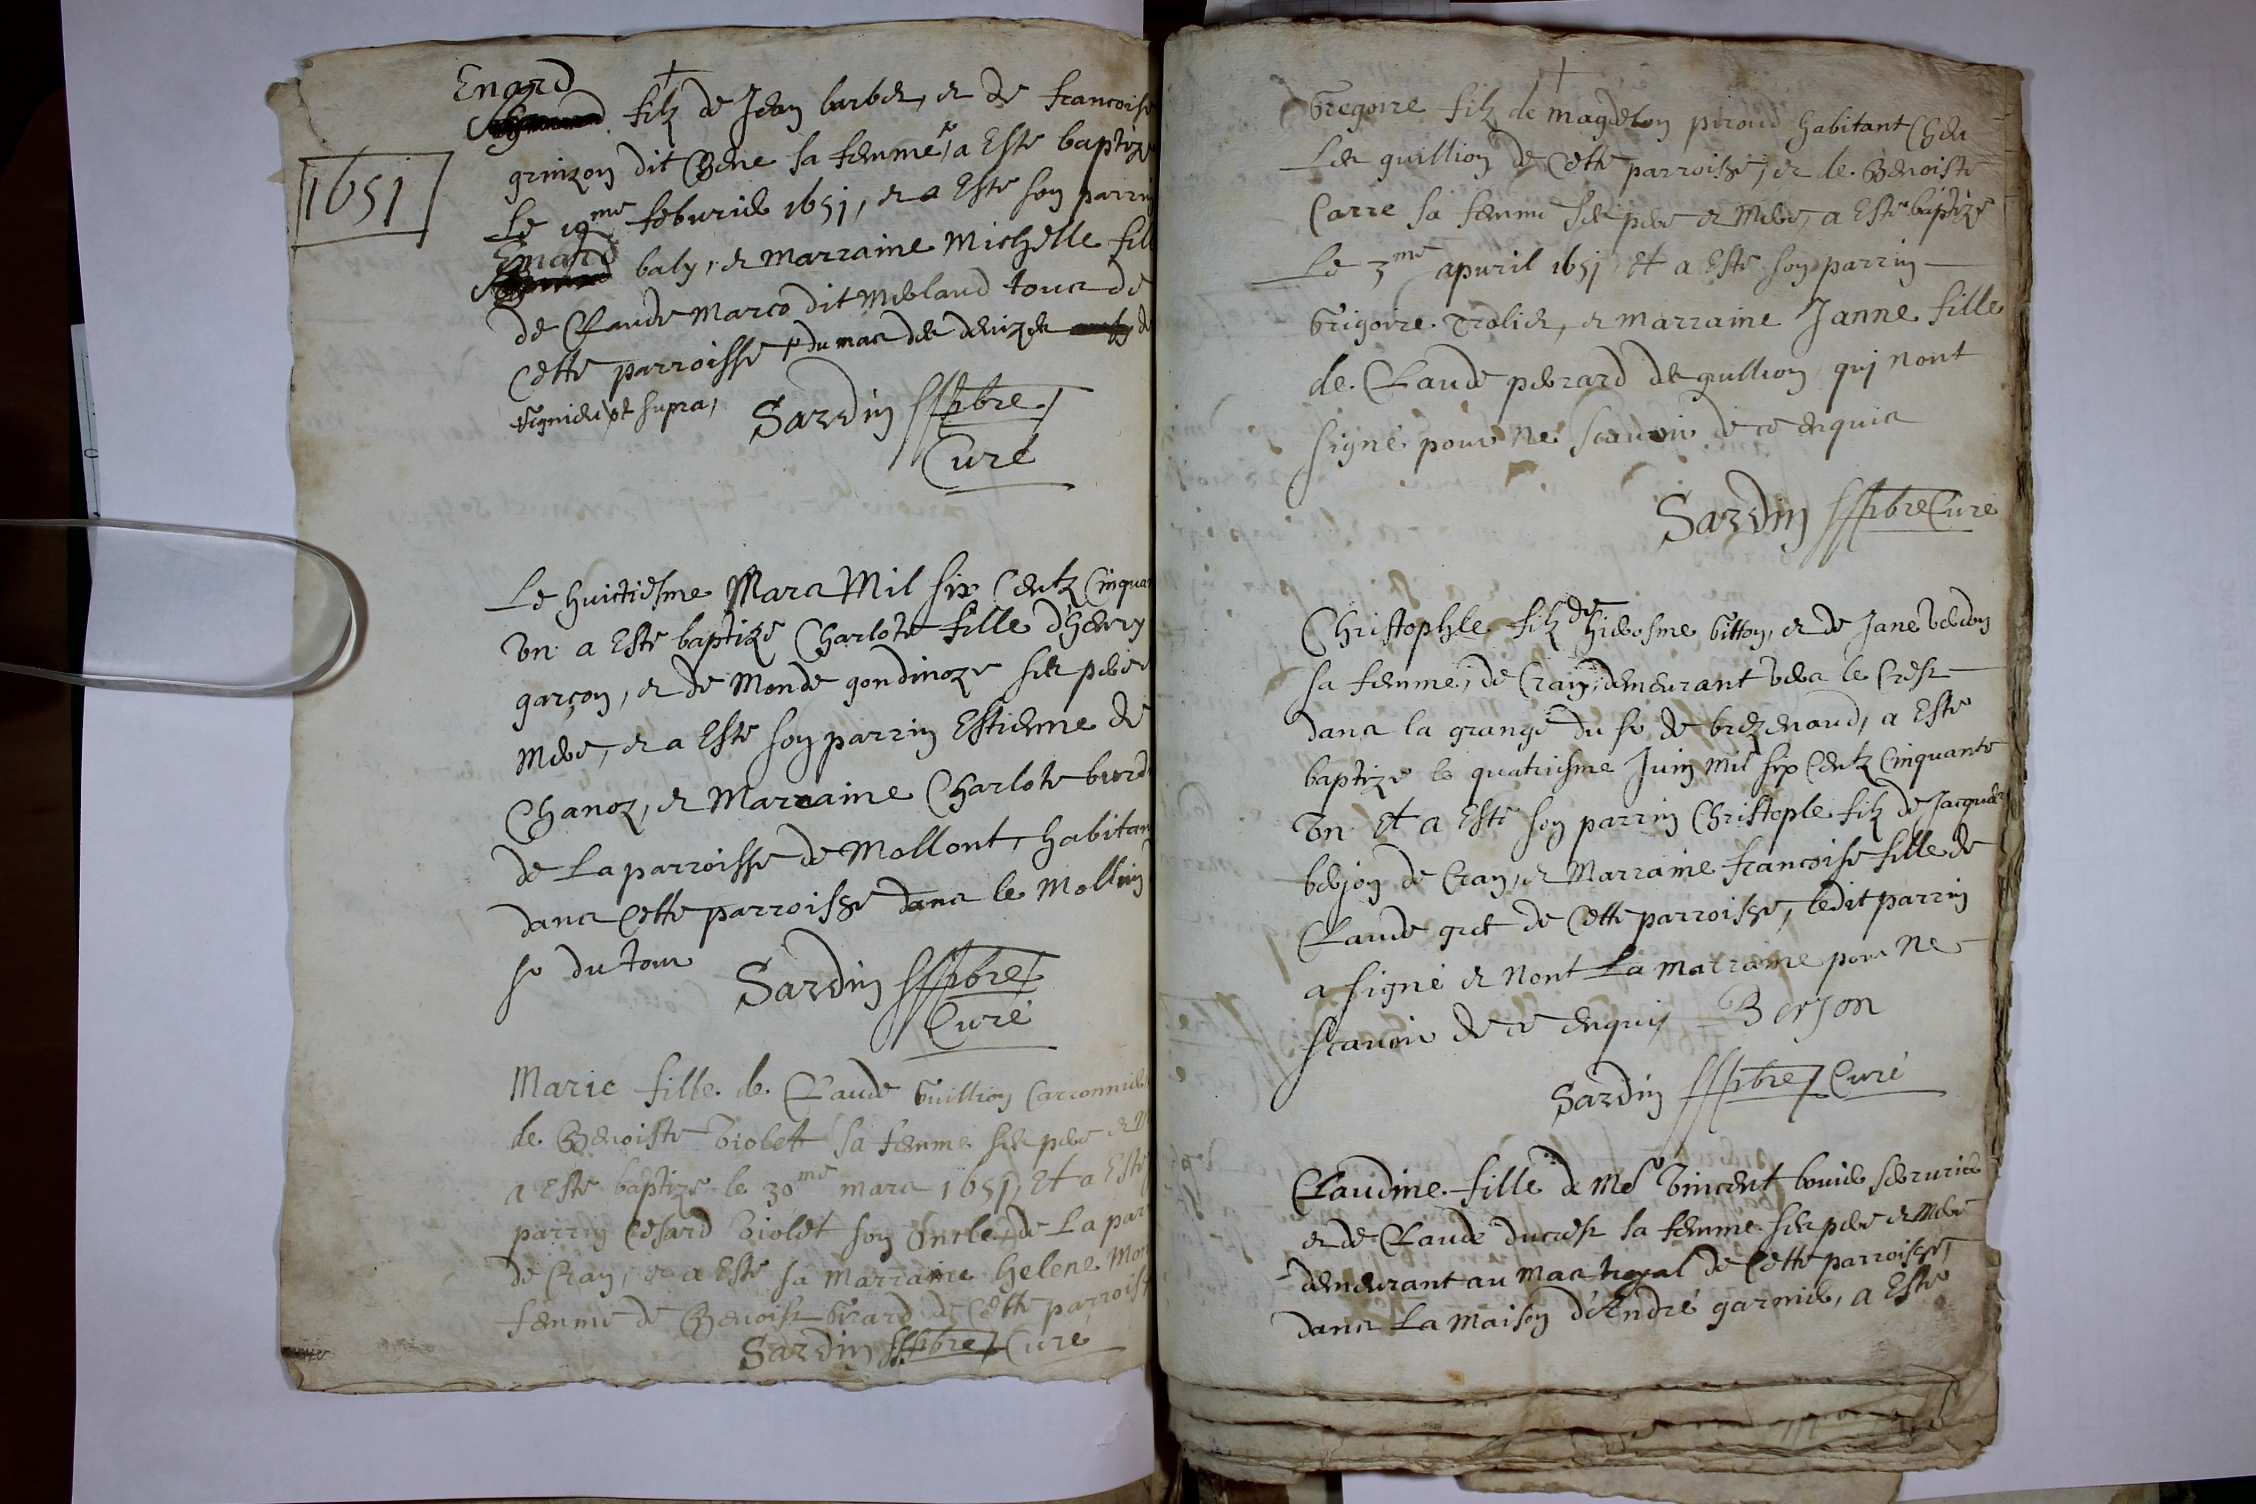 Enard
filz de Jean barber, et de francoise
grinzon dit Bene sa femme, a Esté baptize
1651
Le 19me feburier 1651, et a Esté son parrin
Emard baly, et Marraine Michelle fill
de Claude Marco dit Merland tous de
Cette parroisse du mas des
ut supra,
Sardin pbre
Curé
Le huictiesme Mars Mil six Centz Cinquan
Un a Esté baptize Charlote fille d'henry
garçon, et de Monde gondinoze ses pere
Mere, et a Esté son parrin Estienne de
Chanoz, et Marraine Charlote
de La parroisse de Mollont, habitan
dans Cette parroisse dans le Mollin
sr du tour
Sardin pbre
Curé
Marie fille de Claude Guillion Carronnier
de Benoiste Violet sa femme ses pere et M
a Esté baptize le 30me mars 1651, Et a Esté
parrin Cesard Violet son Oncle, de La par
de Cran, et a Esté sa Marraine helene Mon
femme de Benoist Girard de Cette parroiss
Sardin pbre Curé
Gregoire filz de magdelon piroud habitant Cheu
Les guillion de Cette parroisse, et de Benoiste
Carre sa femme ses pere et Mere, a Esté baptize
Le 3me apuril 1651 Et a Esté son parrin
Grigoire Trolier, et Marraine Janne fille
de Claude perrard de guillion qui nont
signé pour ne scauoir de ce enquis
Sardin pbre Curé
Christophle filz de hierosme bitton, et de Jane verdon
sa femme, de Cran, demeurant vers le Crest
dans la grange du sr de brezenaud, a Esté
baptize le quatriesme Juin Mil six Centz Cinquante
Un Et a Esté son parrin Christople filz de Jacques
berjon de Cran, et Marraine francoise fille de
Claude gret de Cette parroisse, ledit parrin
a signé et Nont La marraine pour Ne
scauoir de ce enquis Berjon
Sardin pbre Curé
Claudine fille de Me Vincent bouier serrurier
et de Claude ducrest sa femme ses pere et Mere
demeurant au Mas trogal de Cette parroisse,
dans La Maison d'André garnier, a Esté